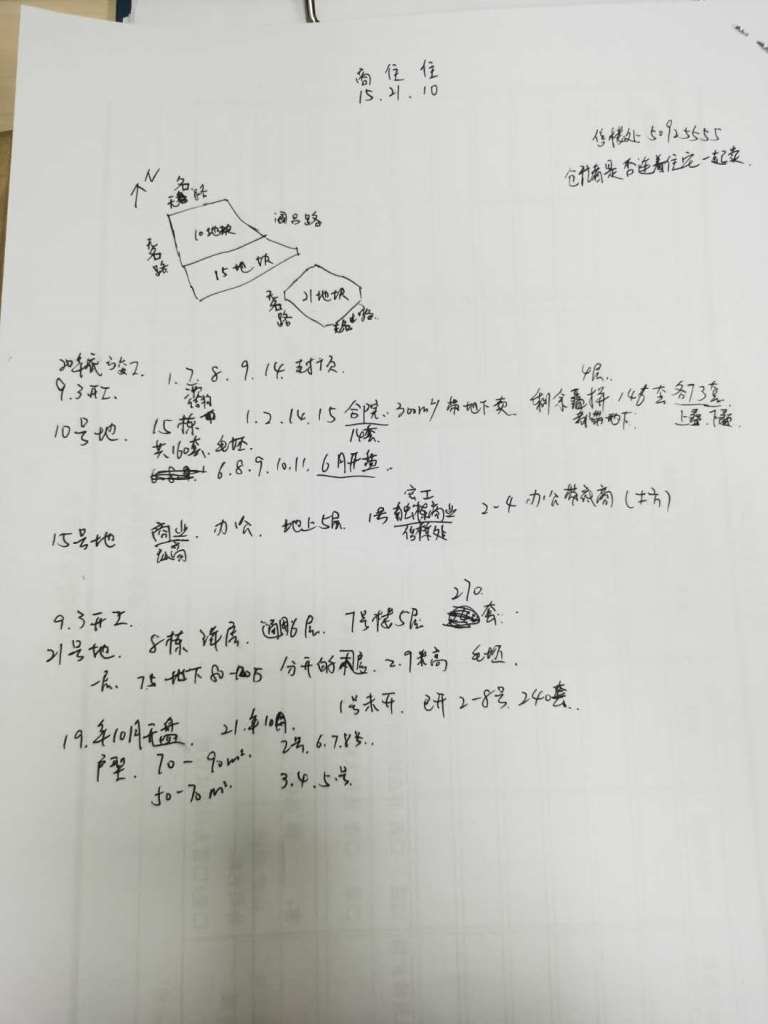 商 住 住
15. 21. 10
售楼处 50925555
是否连着住宅一起卖.
N
无名路
10地块
通吕路
无名路
15地块
21地块
无名路
无名路
20年底
9.3开工. 1. 7. 8. 9. 14. 封顶.
4层.
10号地. 15栋 1. 2. 14. 15 合院. 300m² 带地下卖. 剩余叠拼 148套 各73套
14套 带地下. 上叠.下叠
共160套. 毛坯
6. 8. 9. 10. 11. 6月开盘.
完工
15号地 商业. 办公. 地上5层. 1号 独栋商业 2-4 办公带底商
售楼处
9.3开工.
270
21号地. 8栋 洋房. 6层. 7号楼5层 套.
一层. 75 地下80 分开的 2.9米高 毛坯.
1号未开. 已开 2-8号. 240套.
19.年10月开盘. 21.年10月.
户型. 70-90m². 2号. 6. 7. 8号.
50-70m². 3. 4. 5.号.